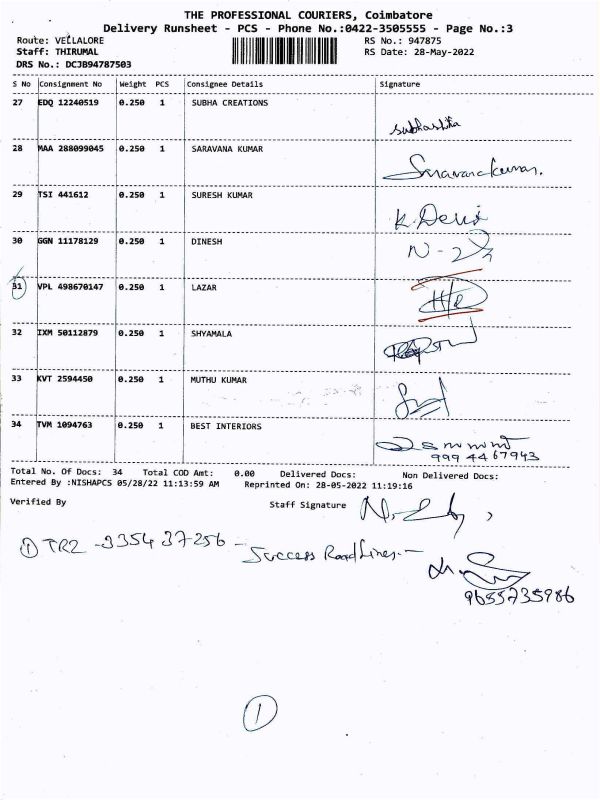 THE PROFESSIONAL COURIERS, Coimbatore
Delivery Runsheet - PCS - Phone No.:0422-3505555 - Page No.:3
Route: VELLALORE RS No.: 947875
Staff: THIRUMAL RS Date: 28-May-2022
DRS No.: DCJB94787503
S No Consignment No Weight PCS Consignee Details Signature
27 EDQ 12240519 0.250 1 SUBHA CREATIONS
28 MAA 288099045 0.250 1 SARAVANA KUMAR
Saravanakumar.
29 TSI 441612 0.250 1 SURESH KUMAR
K. Devi
30 GGN 11178129 0.250 1 DINESH
31 VPL 498670147 0.250 1 LAZAR
32 IXM 50112879 0.250 1 SHYAMALA
33 KVT 2594450 0.250 1 MUTHU KUMAR
34 TVM 1094763 0.250 1 BEST INTERIORS
999 44 67943
Total No. Of Docs: 34 Total COD Amt: 0.00 Delivered Docs: Non Delivered Docs:
Entered By :NISHAPCS 05/28/22 11:13:59 AM Reprinted On: 28-05-2022 11:19:16
Verified By Staff Signature
① TRZ - 335437256 - Success RoadLines. -
9655735986
①